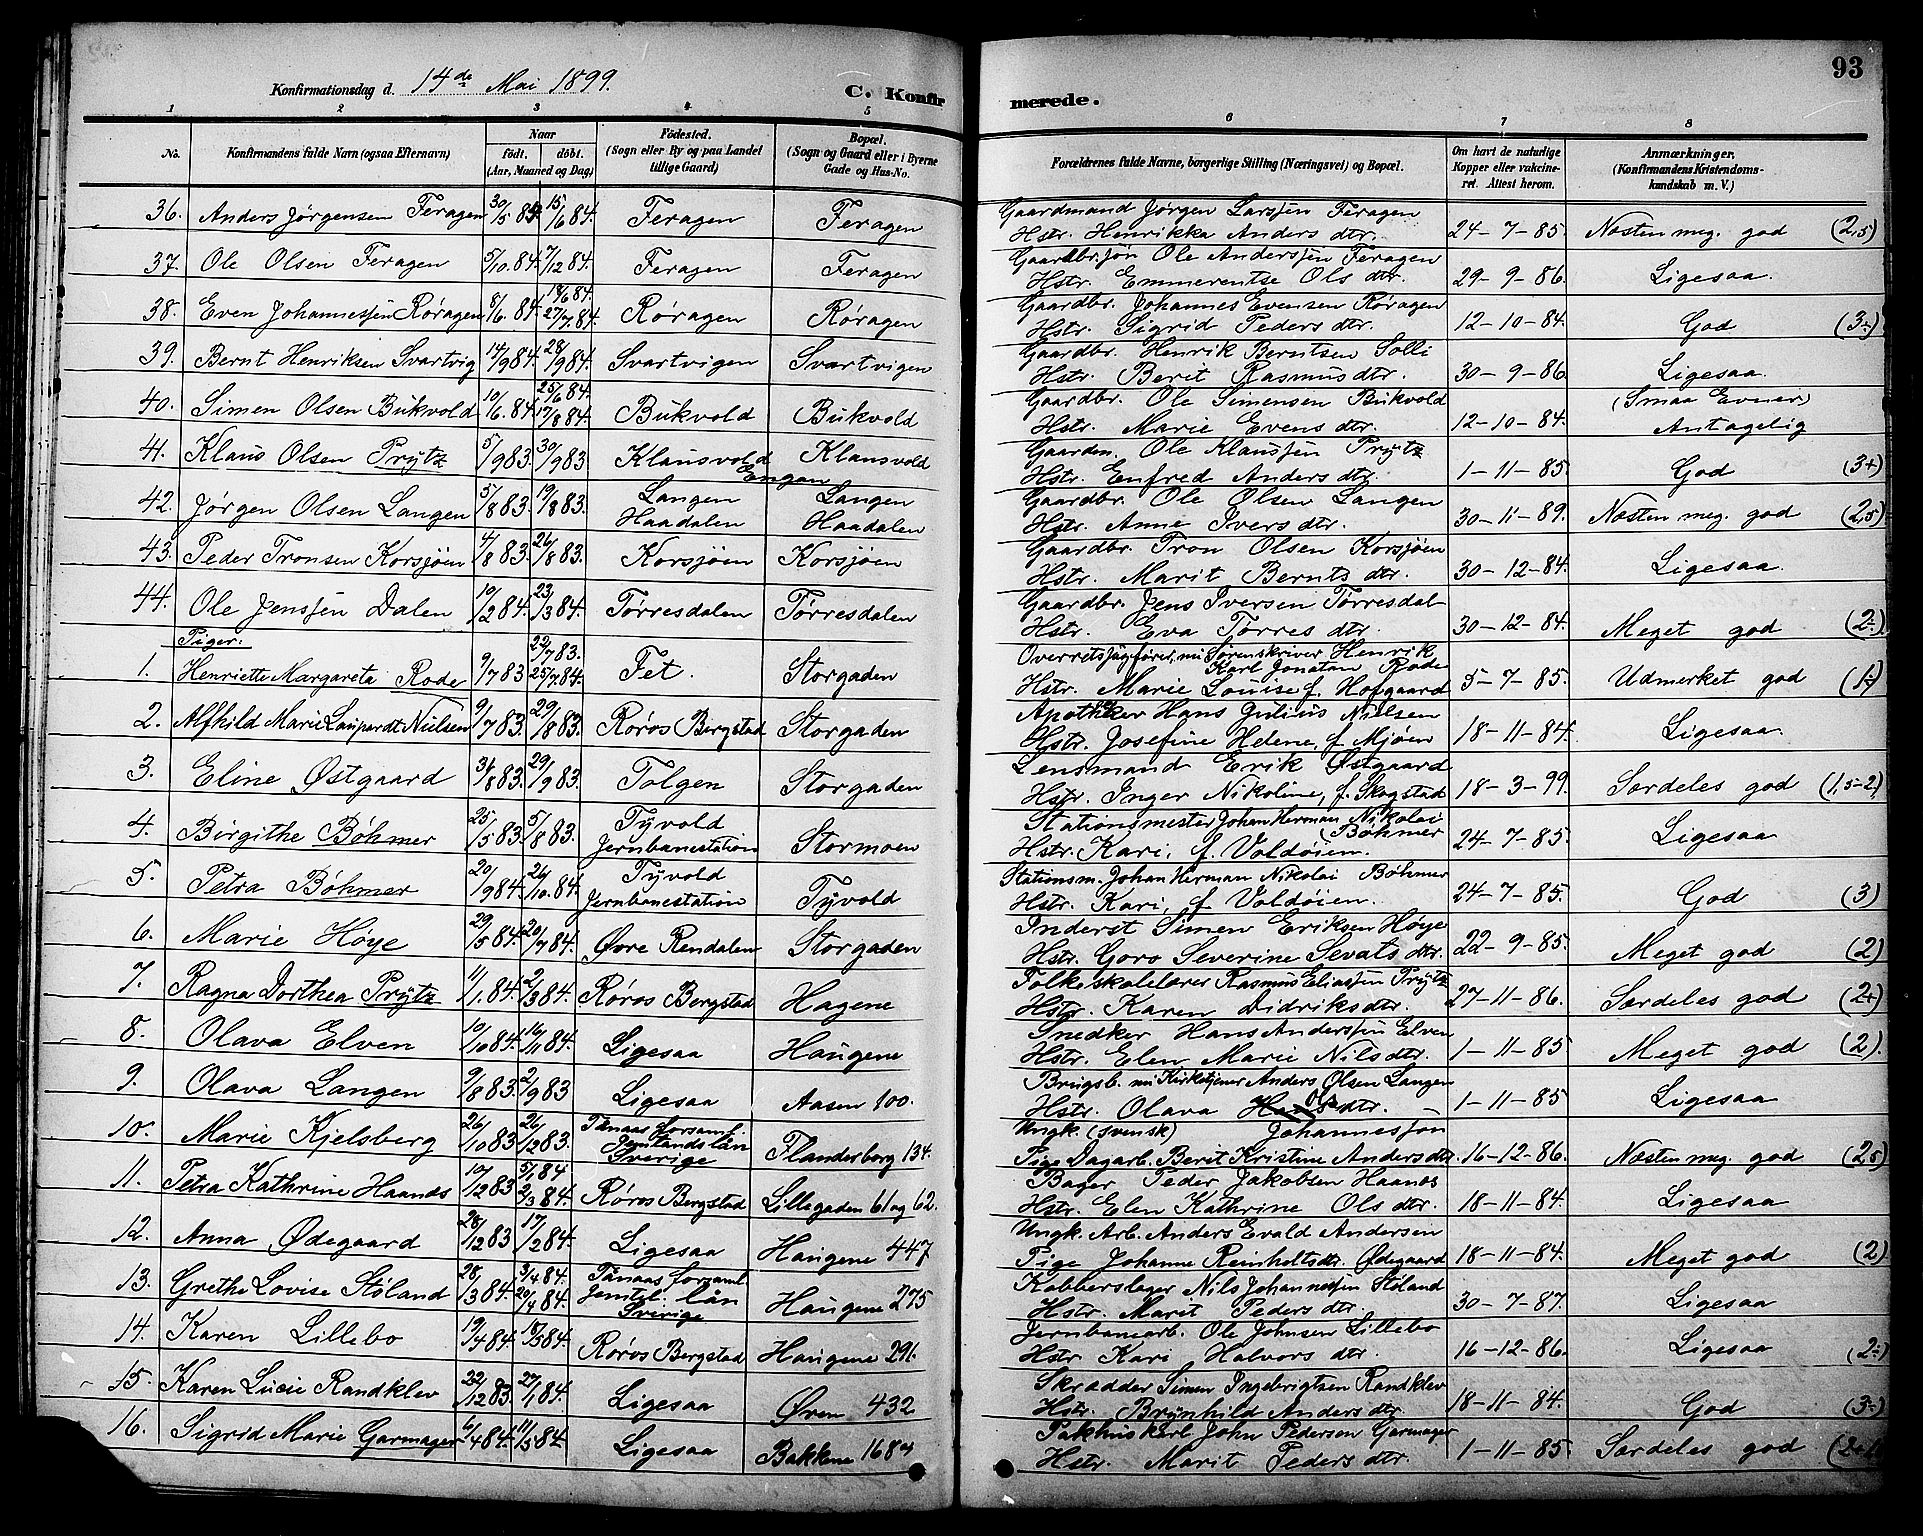 93
Konfirmationsdag d. 14de Mai 1899.
C. Konfirmerede.
1 2 3 4 5 6 7 8
No. Konfirmandens fulde Navn (ogsaa Efternavn) Naar født, døbt. (Aar, Maaned og Dag) Fødested. (Sogn eller By og paa Landet tillige Gaard) Bopæl. (Sogn og Gaard eller i Byerne Gade og Hus-No. Forældrenes fulde Navne, borgerlige Stilling (Næringsvei) og Bopæl. Om havt de naturlige Kopper eller vakcineret. Attest herom. Anmærkninger. (Konfirmandens Kristendomskundskab m. V.)
36. Anders Jörgensen Feragen 30/5 84 15/6 84. Feragen Feragen Gaardmand Jörgen Larssen Feragen
Hstr. Henrikka Anders dtr. 24-7-85. Næsten meg. god (2,5)
37. Ole Olsen Feragen 5/10.84. 7/12 84. Feragen Feragen Gaardbr.søn Ole Anderssen Feragen
Hstr. Emmerentse Ols dtr. 29-9-86. Ligesaa.
38. Even Johannessen Røragen 8/6.84. 18/6 84. 27/7.84. Røragen Røragen Gaardbr. Johannes Evensen Røragen
Hstr. Sigrid Peders dtr. 12-10-84. God (3÷)
39. Bernt Henriksen Svartvig 14/9 84. 28/9 84. Svartvigen Svartvigen Gaardbr. Henrik Berntsen Solli
Hstr. Berit Rasmus dtr. 30-9-86. Ligesaa.
40. Simen Olsen Bukvold 10/6.84. 25/6 84. 17/8 84. Bukvold Bukvold Gaardbr. Ole Simensen Bukvold (Smaa Evner)
Hstr. Marie Evens dtr. 12-10-84. Antagelig
41. Klaus Olsen Prÿtz 5/9 83. 30/9 83. Klausvold Engan Klausvold Gaardm. Ole Klaussen Prÿtz
Hstr. Enfred Anders dtr. 1-11-85. God (3+)
42. Jørgen Olsen Langen 5/8 83. 19/8 83. Langen Haadalen Langen Haadalen Gaardbr. Ole Olsen Langen
Hstr. Anne Ivers dtr. 30-11-89. Næsten meg. god (2,5)
43. Peder Tronsen Korsjöen 4/8 83. 26/8 83. Korsjöen Korsjöen Gaardbr. Tron Olsen Korsjöen
Hstr. Marit Bernts dtr. 30-12-84. Ligesaa.
44. Ole Jenssen Dalen 10/2 84. 23/3 84. Tørresdalen Tørresdalen Gaardbr. Jens Iversen Tørresdal
Hstr. Eva Tørres dtr. 30-12-84. Meget god (2÷)
Piger.
1. Henriette Margareta Rode 9/7 83. 22/7 83. 25/7 84. Fet. Storgaden Overretssagfører, nu Sørenskriver Henrik Karl Jonatan Rode
Hstr. Marie Louise f. Hofgaard 5-7-85. Udmerket god (1÷)
2. Alfhild Marie Laupardt Nielsen 9/7 83. 29/8 83. Røros Bergstad Storgaden Apotheker Hans Julius Nielsen
Hstr. Josefine Helene, f. Mjøen 18-11-84. Ligesaa.
3. Eline Østgaard 31/8 83. 29/9 83. Tolgen Storgaden Lensmand Erik Østgaard
Hstr. Inger Nikoline, f. Skogstad 18-3-99. Særdeles god (1,5-2)
4. Birgithe Bøhmer 25/5 83. 5/8 83. Tÿvold Jernbanestation Stormoen Stationsmester Johan Herman Nikolai Bøhmer
Hstr. Kari, f. Voldøien. 24-7-85. Ligesaa
5. Petra Bøhmer 20/9 84. 26/10.84. Tÿvold Jernbanestation Tÿvold Stationsm. Johan Herman Nikolai Bøhmer
Hstr. Kari, f. Voldøien. 24-7-85. God (3)
6. Marie Høye 29/5 84. 20/7 84. Øvre Rendalen Storgaden Inderst Simen Eriksen Høye
Hstr. Goro Severine Sevats dtr. 22-9-85. Meget god (2)
7. Ragna Dorthea Prÿtz 11/1.84. 2/3 84. Røros Bergstad Hagene Folkeskolelærer Rasmus Eliassen Prÿtz
Hstr. Karen Didriks dtr. 27-11-86. Særdeles god (2+)
8. Olava Elven 10/10 84. 16/11 84. Ligesaa Haugene Snedker Hans Anderssen Elven
Hstr. Elen Marie Nils dtr. 1-11-85 Meget god (2).
9. Olava Langen 9/8 83. 2/9 83 Ligesaa Aasen 100. Brugsb. nu Kirketjener Anders Olsen Langen
Hstr. Olava Ols dtr. 1-11-85 Ligesaa
10. Marie Kjelsberg 26/10 83. 26/12 83. Tänaas forsaml. Jemtlands län Sverige Flanderborg 134. Ungk. (svensk) Johannesson
Pige Dagarb. Berit Kristine Anders dtr. 16-12-86. Næsten meg. god (2,5)
11. Petra Kathrine Haanæs 10/12 83. 5/1 84 2/3 84. Røros Bergstad Lillegaden 61 og 62. Bager Peder Jakobsen Haanæs
Hstr. Elen Kathrine Ols dtr. 18-11-84. Ligesaa
12. Anna Ødegaard 28/12 83. 17/2 84. Ligesaa Haugene 447 Ungk. Arb. Anders Evald Andersen
Pige Johanne Reinholtsdtr. Ødegaard 18-11-84. Meget god (2)
13. Grethe Lovise Støland 28/3 84. 3/4 84. 20/4 84. Tänaas forsaml. Jemtl. län Sverige Haugene 275 Kobberslager Nils Johannessen Støland
Hstr. Marit Peders dtr. 30-7-87. Ligesaa
14. Karen Lillebo 19/4 84. 18/5 84. Røros Bergstad Haugene 291. Jernbanearb. Ole Johnsen Lillebo
Hstr. Kari Halvors dtr. 16-12-86. Ligesaa (2÷)
15. Karen Lucie Randklev 22/12 83. 27/1 84. Ligesaa Øren 432 Skrædder Simen Ingebrigtsen Randklev
Hstr. Brÿnhild Anders dtr. 18-11-84. God (3÷)
16. Sigrid Marie Garmager 6/4 84. 11/5 84. Ligesaa Bakkene 168 Pakhuskarl John Pedersen Garmager
Hstr. Marit Peders dtr. 1-11-85. Særdeles god